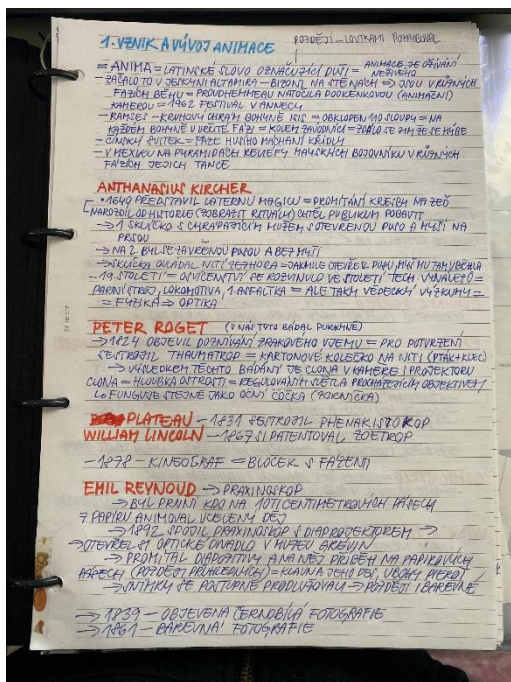 1. VZNIK A VÝVOJ ANIMACE
POZDĚJI – LOUTKAMI POHYBOVAL
= ANIMA = LATINSKÉ SLOVO OZNAČUJÍCÍ DUŠI = ANIMACE JE OŽÍVÁNÍ NEŽIVÉHO
– ZAČALO TO V JESKYNI ALTAMIRA – BIZONI NA STĚNÁCH → JSOU V RŮZNÝCH
FÁZÍCH BĚHU = PROUDHEMMEAU NATOČILA POOKÉNKOVOU (ANIMAČNÍ)
KAMEROU = 1962 FESTIVAL V ANNECY
– RAMSES – KRUHOVÝ CHRÁM BOHYNĚ ISIS = OBKLOPEN 110 SLOUPY = NA
KAŽDÉM BOHYNĚ V URČITÉ FÁZI = KOLEM ZÁVODNÍCI = ZDÁLO SE JIM ŽE SE HÝBE
– ČÍNSKÝ SVITEK = FÁZE HUSÍHO MÁCHÁNÍ KŘÍDLY
– V MEXIKU NA PYRAMIDÁCH RELIÉFY MAYSKÝCH BOJOVNÍKŮ V RŮZNÝCH
FÁZÍCH JEJICH TANCE
ANTHANASIUS KIRCHER
• 1640 PŘEDSTAVIL LATERNU MAGICU = PROMÍTÁNÍ KRESEB NA ZEĎ
NAROZDÍL OD HISTORIE (ZOBRAZIT RITUÁLY) CHTĚL PUBLIKUM POBAVIT
→ 1 SKLÍČKO S CHRAPAJÍCÍM MUŽEM S OTEVŘENOU PUSO A MYŠÍ NA
PRSOU
→ NA 2. BYL SE ZAVŘENOU PUSOU A BEZ MYŠI
→ SKLÍČKA OVLÁDAL NITÍ ZEZHORA – JAKMILE OTEVŘEL PUSU, MYŠ MU TAM VBĚHLA
– 19. STOLETÍ = OSVÍCENSTVÍ SE ROZVINULO VE STOLETÍ TECH. VYNÁLEZŮ =
PARNÍ STROJ, LOKOMOTIVA, 1. ASFALTKA = ALE TAKY VĚDECKÝ VÝZKUMY =
= FYZIKA → OPTIKA
PETER ROGET (V NÁS TOTO BÁDAL PURKYNĚ)
→ 1824 OBJEVIL DOZNÍVÁNÍ ZRAKOVÉHO VJEMU = PRO POTVRZENÍ
SESTROJIL THAUMATROP = KARTONOVÉ KOLEČKO NA NITI (PTÁK + KLEC)
→ VÝSLEDKEM TĚCHTO BÁDÁNÍ JE CLONA V KAMEŘE I PROJEKTORU
CLONA = HLOUBKA OSTROSTI = REGULOVÁNÍM SVĚTLA PROCHÁZEJÍCÍM OBJEKTIVEM
FUNGUJE STEJNĚ JAKO OČNÍ ČOČKA (ZORNIČKA)
PLATEAU – 1831 SESTROJIL PHENAKISTOKOP
WILLIAM LINCOLN – 1867 SI PATENTOVAL ZOETROP
– 1878 – KINEOGRAF = BLOČEK S FÁZEMI
EMIL REYNOUD → PRAXINOSKOP
→ BYL PRVNÍ KDO NA 10TI CENTIMETROVÝCH PÁSECH
Z PAPÍRU ANIMOVAL UCELENÝ DĚJ
→ 1892 SPOJIL PRAXINOSKOP S DIAPROJEKTOREM →
→ OTEVŘEL SI OPTICKÉ DIVADLO V MUZEU GRÉVIN
→ PROMÍTAL DIAPOZITIVY A NA NĚJ PŘÍBĚH NA PAPÍROVÝCH
PÁSECH (POZDĚJI PRŮHLEDNÝCH) = KLAUN A JEHO PSI, UBOHÝ PIEROT
→ SNÍMKY SE POSTUPNĚ PRODLUŽOVALY → POZDĚJI I BAREVNÉ
→ 1839 – OBJEVENA ČERNOBÍLÁ FOTOGRAFIE
→ 1861 – BAREVNÁ FOTOGRAFIE